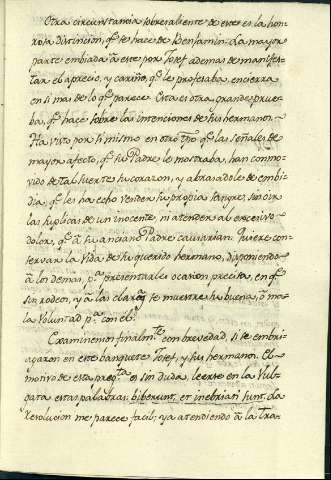 Otra circunstancia sobresaliente de este es la hon-
rosa distincion, q.e se hace de Benjamin. La mayor
parte embiada à este por Josef ademas de manifes-
tar el aprecio, y cariño, q.e le profesaba, encierra
en si mas de lo q.e parece. Esta es otra grande prue-
ba, q.e hace sobre las intenciones de sus hermanos.
Ha visto por si mismo en otro tpõ q.e las señales de
mayor afecto, q.e su Padre le mostraba, han conmo-
vido de tal suerte su corazon, y abrasadole de embi-
dia, q.e les ha echo vender su propia sangre, sin oir
las suplicas de un inocente, ni atender al excesivo
dolor, q.e à su anciano Padre causarian. Quiere con-
servar la vida de su querido hermano, disponiendo
à los demas, p.a presentarles ocasion precisa, en q.e
sin rodeos, y à las claras te muestre su buena, ò ma-
la voluntad p.a con el.
Examinemos finalm.te con brevedad, si se embri-
agaron en este banquete Josef, y sus hermanos. El
motivo de esta preg.ta es sin duda, leerse en la Vul-
gata estas palabras: biberunt, et inebriati sunt. La
resolucion me parece facil; ya atendiendo à la tra-